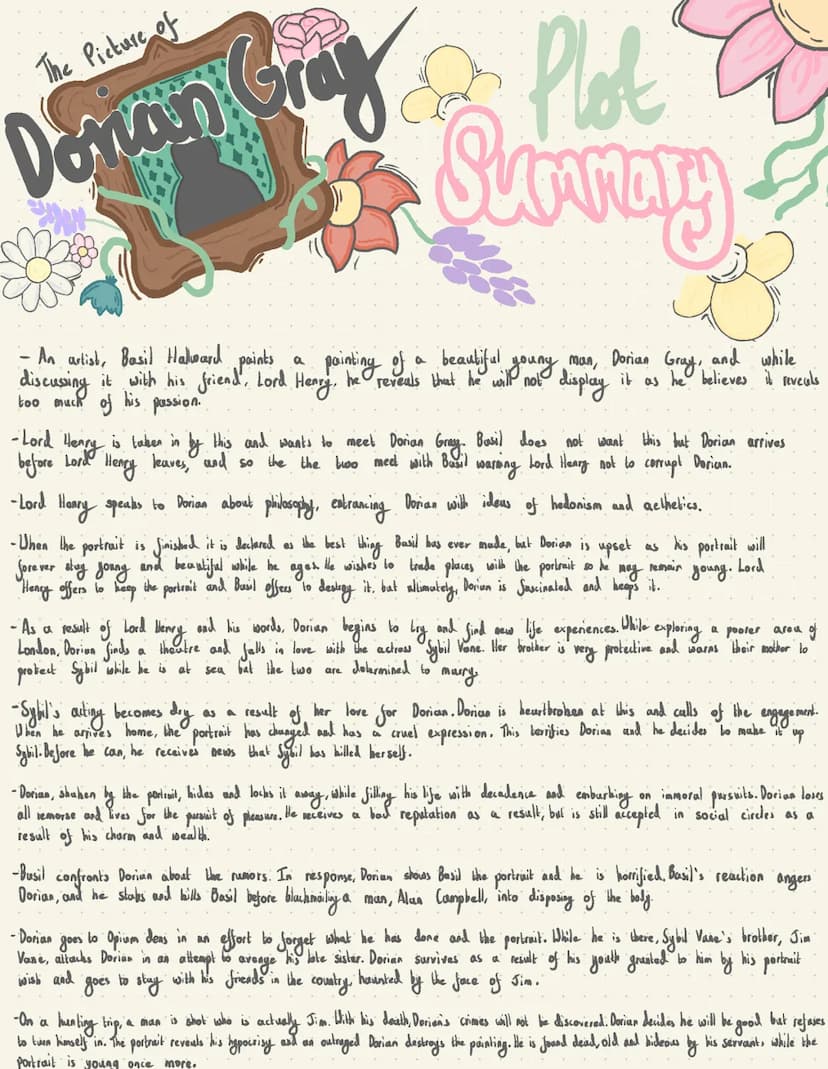 The Picture of
Dorian Gray
Plot
Summary
- An artist, Basil Hallward paints a painting of a beautiful young man, Dorian Gray, and while
discussing it with his friend, Lord Henry, he reveals that he will not display it as he believes it reveals
too much of his passion.
- Lord Henry is taken in by this and wants to meet Dorian Gray. Basil does not want this but Dorian arrives
before Lord Henry leaves, and so the the two meet with Basil warning Lord Henry not to corrupt Dorian.
- Lord Henry speaks to Dorian about philosophy, entrancing Dorian with ideas of hedonism and aethetics.
- When the portrait is finished it is declared as the best thing Basil has ever made, but Dorian is upset as his portrait will
forever stay young and beautiful while he ages. He wishes to trade places with the portrait so he may remain young. Lord
Henry offers to keep the portrait and Basil offers to destroy it, but ultimately, Dorian is fascinated and keeps it.
- As a result of Lord Henry and his words, Dorian begins to try and find new life experiences. While exploring a poorer area of
London, Dorian finds a theatre and falls in love with the actress Sybil Vane. Her brother is very protective and warns their mother to
protect Sybil while he is at sea but the two are determined to marry.
- Sybil's acting becomes dry as a result of her love for Dorian. Dorian is heartbroken at this and calls of the engagement.
When he arrives home, the portrait has changed and has a cruel expression. This terrifies Dorian and he decides to make it up
Sybil. Before he can, he receives news that Sybil has killed herself.
- Dorian, shaken by the portrait, hides and locks it away, while filling his life with decadence and embarking on immoral pursuits. Dorian loses
all remorse and lives for the pursuit of pleasure. He receives a bad reputation as a result, but is still accepted in social circles as a
result of his charm and wealth.
- Basil confronts Dorian about the rumors. In response, Dorian shows Basil the portrait and he is horrified. Basil's reaction angers
Dorian, and he stabs and kills Basil before blackmailing a man, Alan Campbell, into disposing of the body.
- Dorian goes to Opium dens in an effort to forget what he has done and the portrait. While he is there, Sybil Vane's brother, Jim
Vane, attacks Dorian in an attempt to avenge his late sister. Dorian survives as a result of his youth granted to him by his portrait
wish and goes to stay with his friends in the country, haunted by the face of Jim.
- On a hunting trip, a man is shot who is actually Jim. With his death, Dorian's crimes will not be discovered. Dorian decides he will be good but refuses
to turn himself in. The portrait reveals his hypocrisy and an outraged Dorian destroys the painting. He is found dead, old and hideous by his servant, while the
portrait is young once more.